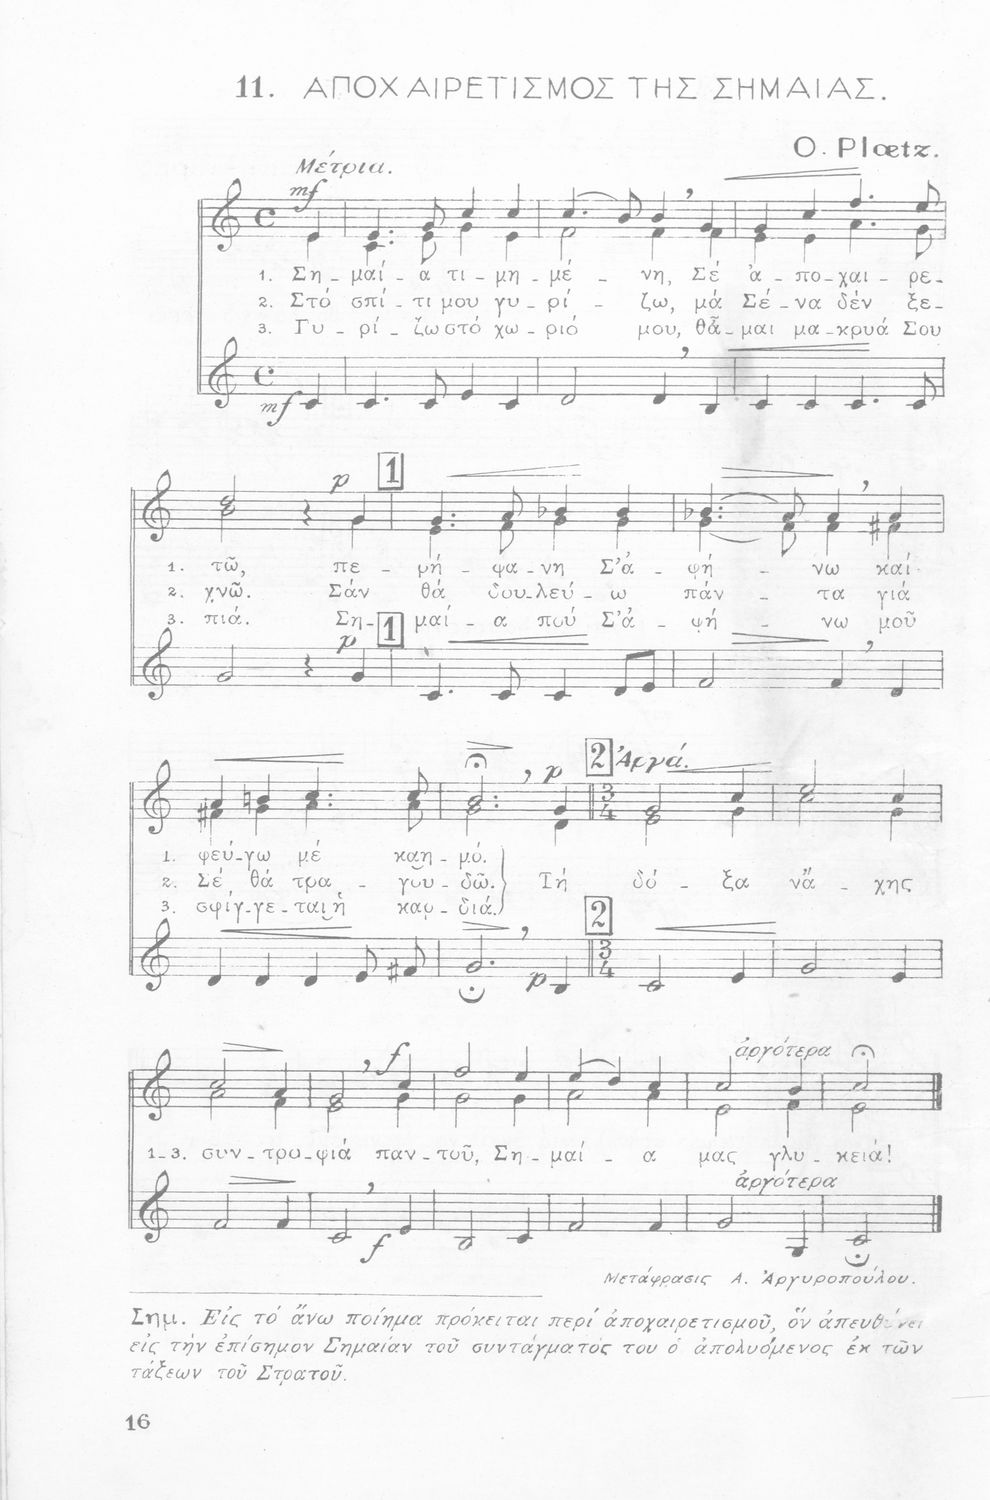 11. ΑΠΟΧΑΙΡΕΤΙΣΜΟΣ ΤΗΣ ΣΗΜΑΙΑΣ.
O. Plœtz.
Μέτρια.
mf
1. Ση_μαί_α τι_μη_μέ _ νη, Σέ ἀ_πο_χαι_ρε_
2. Στό σπί_τι μου γυ_ρί _ ζω, μά Σέ_να δέν ξε_
3. Γυ_ρί_ζω στό χω_ριό μου, θἆ_μαι μα_κρυά Σου
mf
p 1
1. τῶ, πε _ ρή _ φα_νη Σ'ἀ _ φή _ νω καί
2. χνῶ. Σάν θά δου_λεύ_ω πάν _ τα γιά
3. πιά. Ση_μαί_α πού Σ'ἀ _ φή _ νω μοῦ
p 1
p 2 Ἀργά.
1. φεύ_γω μέ καη_μό.
2. Σέ θά τρα _ γου_δῶ. Τή δό _ ξα νἄ _ χης
3. σφίγ_γε_ται ἡ καρ_διά.
p 2
f ἀργότερα
1_3. συν_τρο_φιά παν_τοῦ, Ση_μαί _ α μας γλυ_κειά!
ἀργότερα
f
Μετάφρασις Α. Ἀργυροπούλου.
Σημ. Εἰς τό ἄνω ποίημα πρόκειται περί ἀποχαιρετισμοῦ, ὅν ἀπευθύνει
εἰς τήν ἐπίσημον Σημαίαν τοῦ συντάγματός του ὁ ἀπολυόμενος ἐκ τῶν
τάξεων τοῦ Στρατοῦ.
16